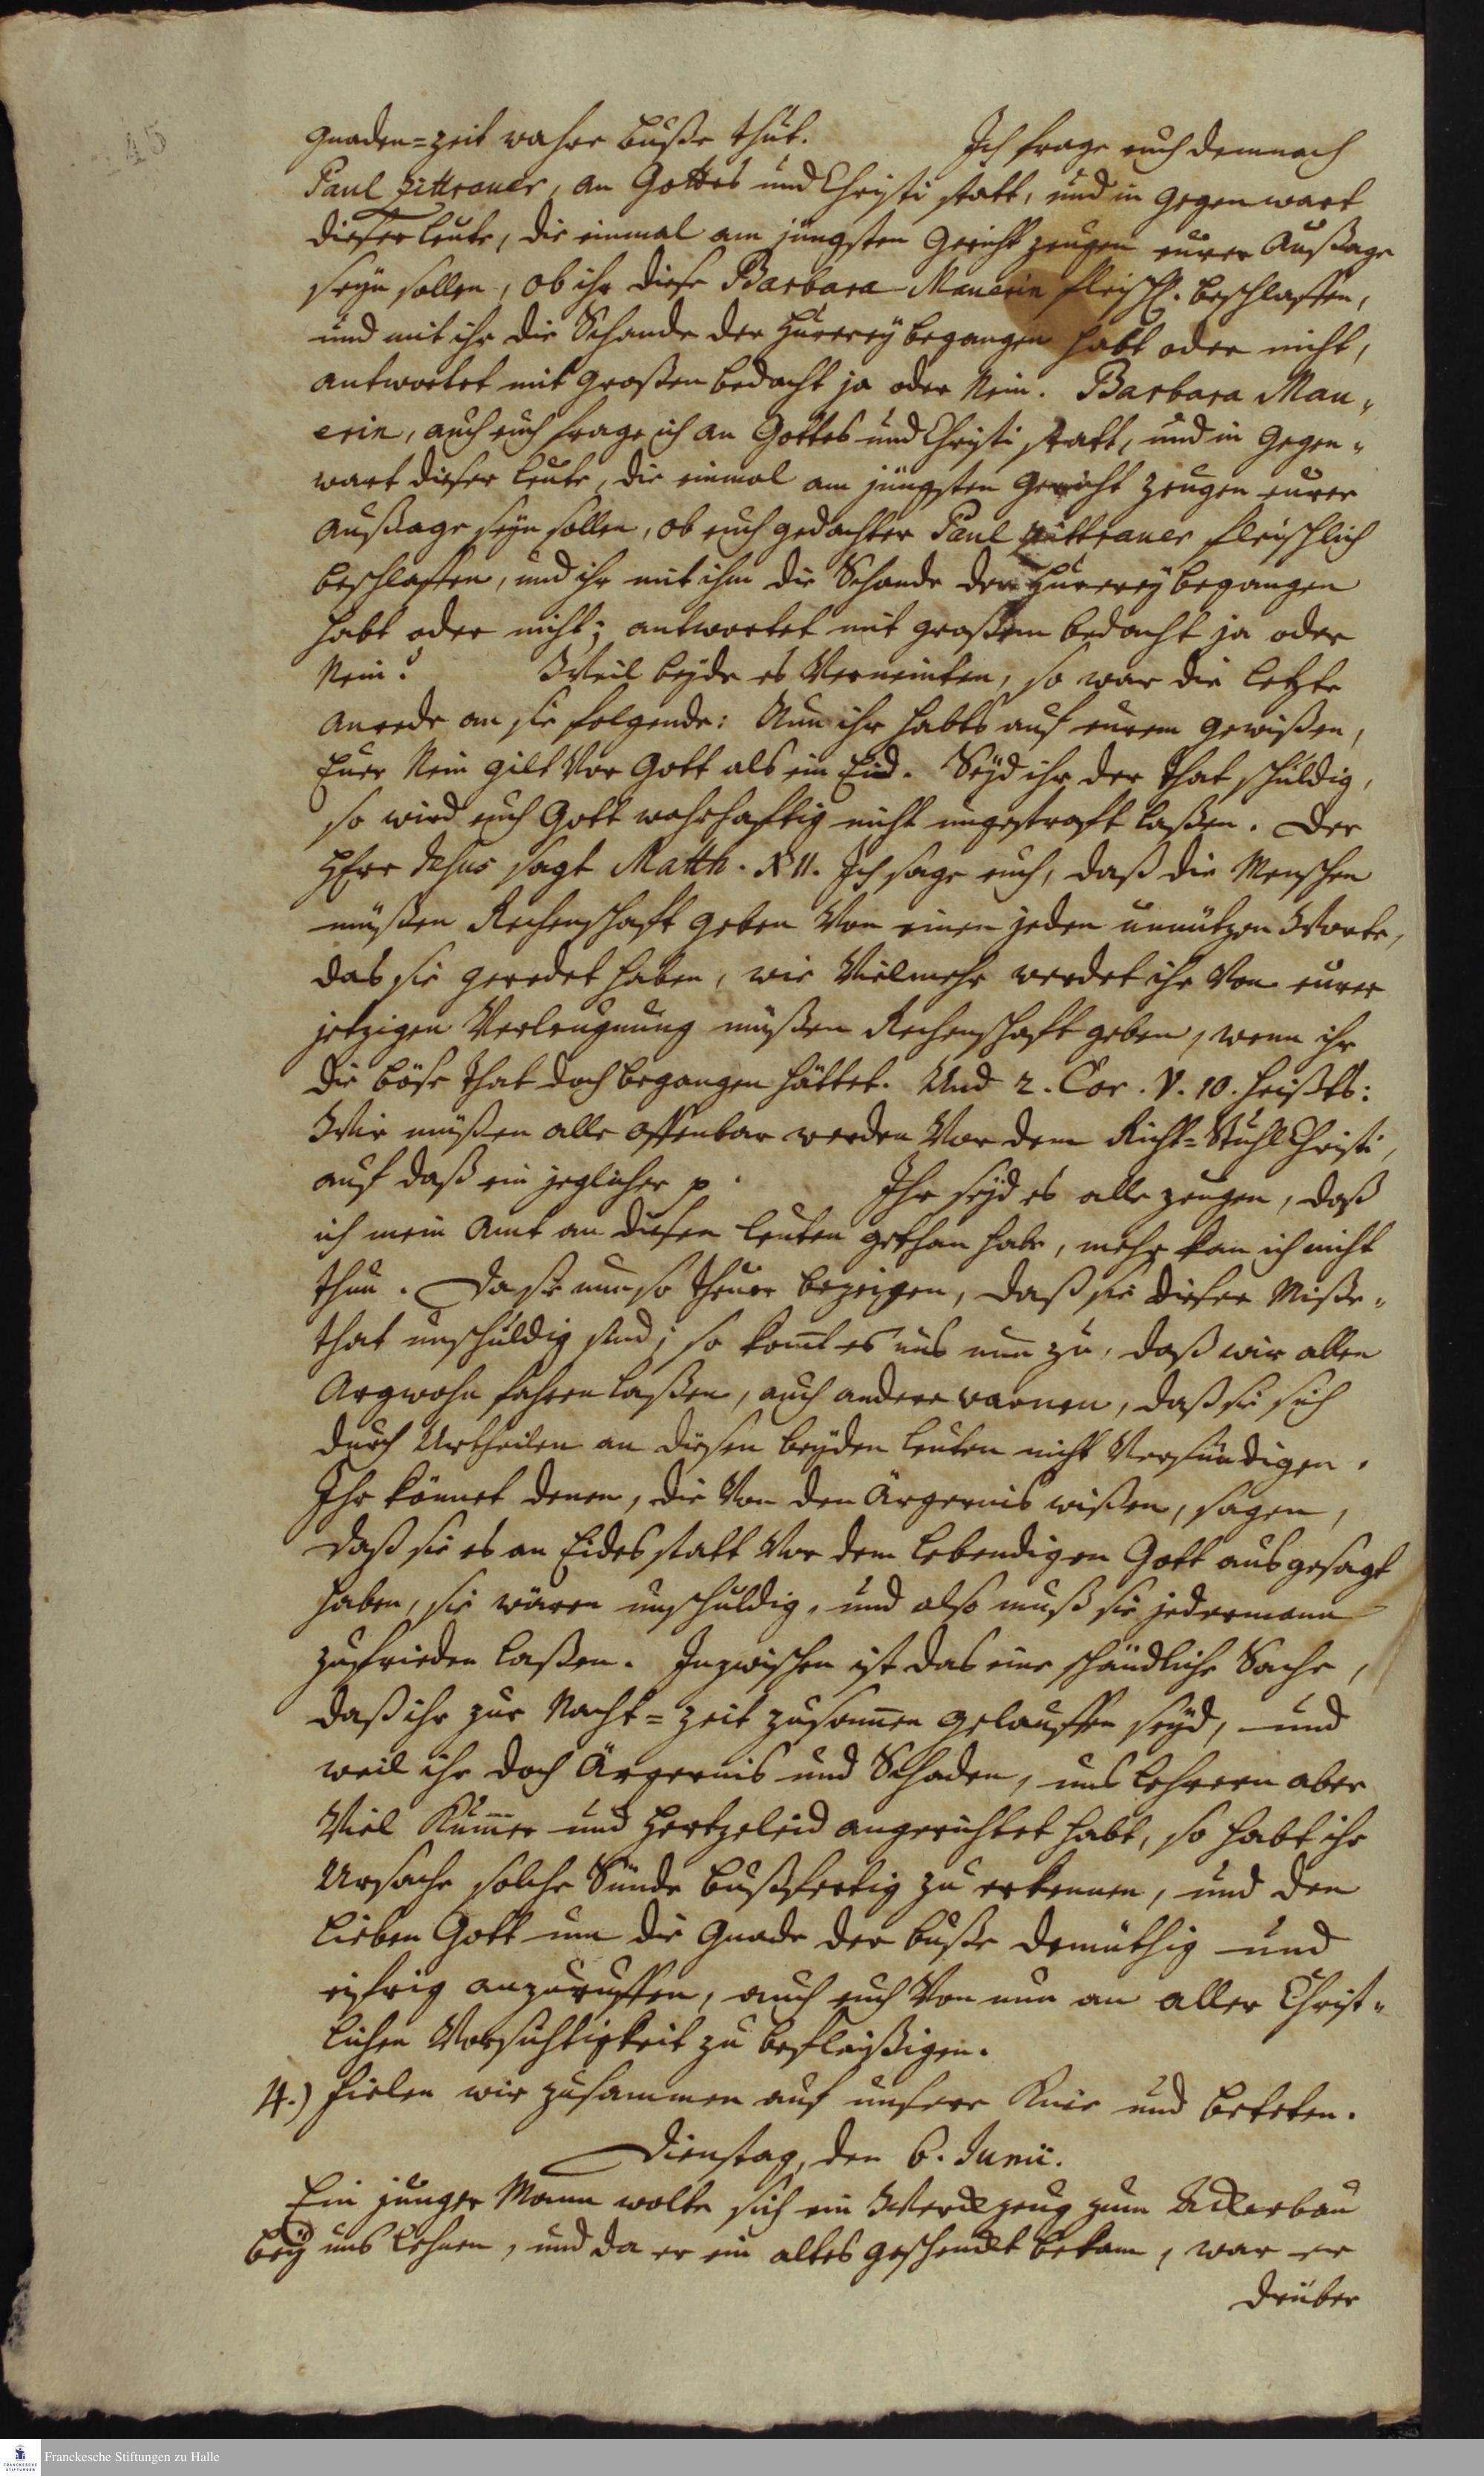 45
Gnaden=Zeit wahre Buße thut. Ich frage euch demnach
Paul Zittrauer, an Gottes und Christi statt, und in Gegenwart
dieser Leute, die einmal am jüngsten Gericht Zeugen eurer Außage
seyn sollen, ob ihr diese Barbara Maurerin fleischl. beschlaffen,
und mit ihr die Schande der Hurerey begangen habt oder nicht,
antwortet mit großen bedacht ja oder Nein. Barbara Mau„
rerin, auch euch frage ich an Gottes und Christi statt, und in Gegen„
wart dieser Leute, die einmal am jüngsten Gericht Zeugen eurer
Außage seyn sollen, ob euch gedachter Paul Zittrauer fleischlich
beschlaffen, und ihr mit ihm die Schande der Hurerey begangen
habt oder nicht; antwortet mit großem bedacht ja oder
Nein? Weil beyde es Verneinten, so war die letzte
Anrede an sie folgende: Nun ihr habts auf eurem Gewißen,
Euer Nein gilt Vor Gott als ein Eid. Seyd ihr der That schuldig,
so wird euch Gott wahrhaftig nicht ungestraft laßen. Der
HErr JEsus sagt Matth. XII. Ich sage euch, daß die Menschen
müßen Rechenschaft geben Von einen jeden unnützen Worte,
das sie geredet haben, wie Vielmehr werdet ihr Von eurer
jetzigen Verleugnung müßen Rechenschaft geben, wenn ihr
die böse That doch begangen hättet. Und 2. Cor. V. 10. heißts:
Wir müßen alle offenbar werden Vor dem Richt=Stuhl Christi,
auf daß ein jeglicher p. Ihr seyd es alle Zeugen, daß
ich mein Amt an diesen Leuten gethan habe, mehr kan ich nicht
thun. Da sie nun so theuer bezeigen, daß sie dieser Misse„
that unschuldig sind; so kom̄t es uns nun zu, daß wir allen
Argwohn fahren laßen, auch andere warnen, daß sie sich
durch Urtheilen an diesen beyden Leuten nicht Versündigen.
Ihr könnet denen, die Von den Ärgernis wißen, sagen,
daß sie es an Eides statt Vor dem lebendigen Gott ausgesagt
haben, sie wären unschuldig, und also muß sie jedermann
zufrieden laßen. Inzwischen ist das eine schändliche Sache,
daß ihr zur Nacht=Zeit zusam̄en gelauffen seyd, und
weil ihr doch Ärgernis und Schaden, uns Lehrern aber
Viel Kum̄er und Hertzeleid angerichtet habt, so habt ihr
Ursache solche Sünde bußfertig zu erkennen, und den
lieben Gott um die Gnade der Buße demüthig und
eifrig anzuruffen, auch euch Von nun an aller Christ„
lichen Vorsichtigkeit zu befleißigen.
4.) fielen wir zusammen auf unsere Knie und beteten.
Dienstag, den 6. Junii.
Ein junger Mann wolte sich ein Werckzeug zum Ackerbau
bey uns lehnen, und da er ein altes geschenckt bekam, war er
drüber
Franckesche Stiftungen zu Halle